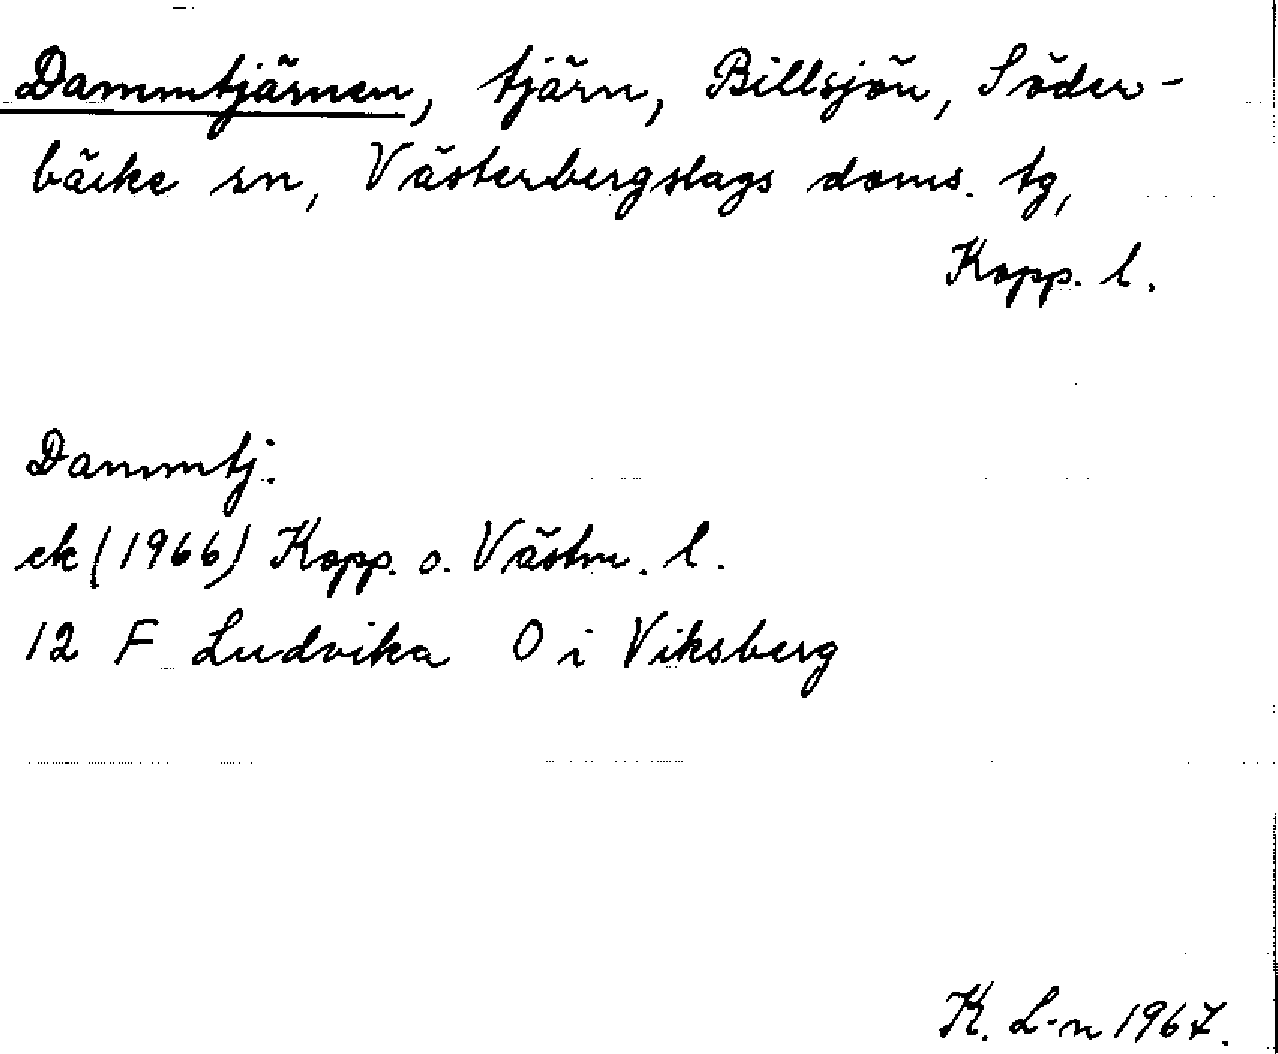 Dammtjärnen, tjärn, Billsjön, Söder-
bärke sn, Västerbergslags doms. tg,
Kopp. l.
Dammtj.
ek (1966) Kopp. o. Västm. l.
12 F Ludvika O i Viksberg
K. L-n 1967.